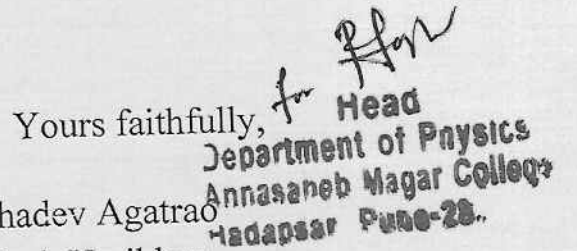 for
Yours faithfully,
Head
Department of Physics
Annasaheb Magar College
Hadapsar Pune-28.
hadev Agatrao